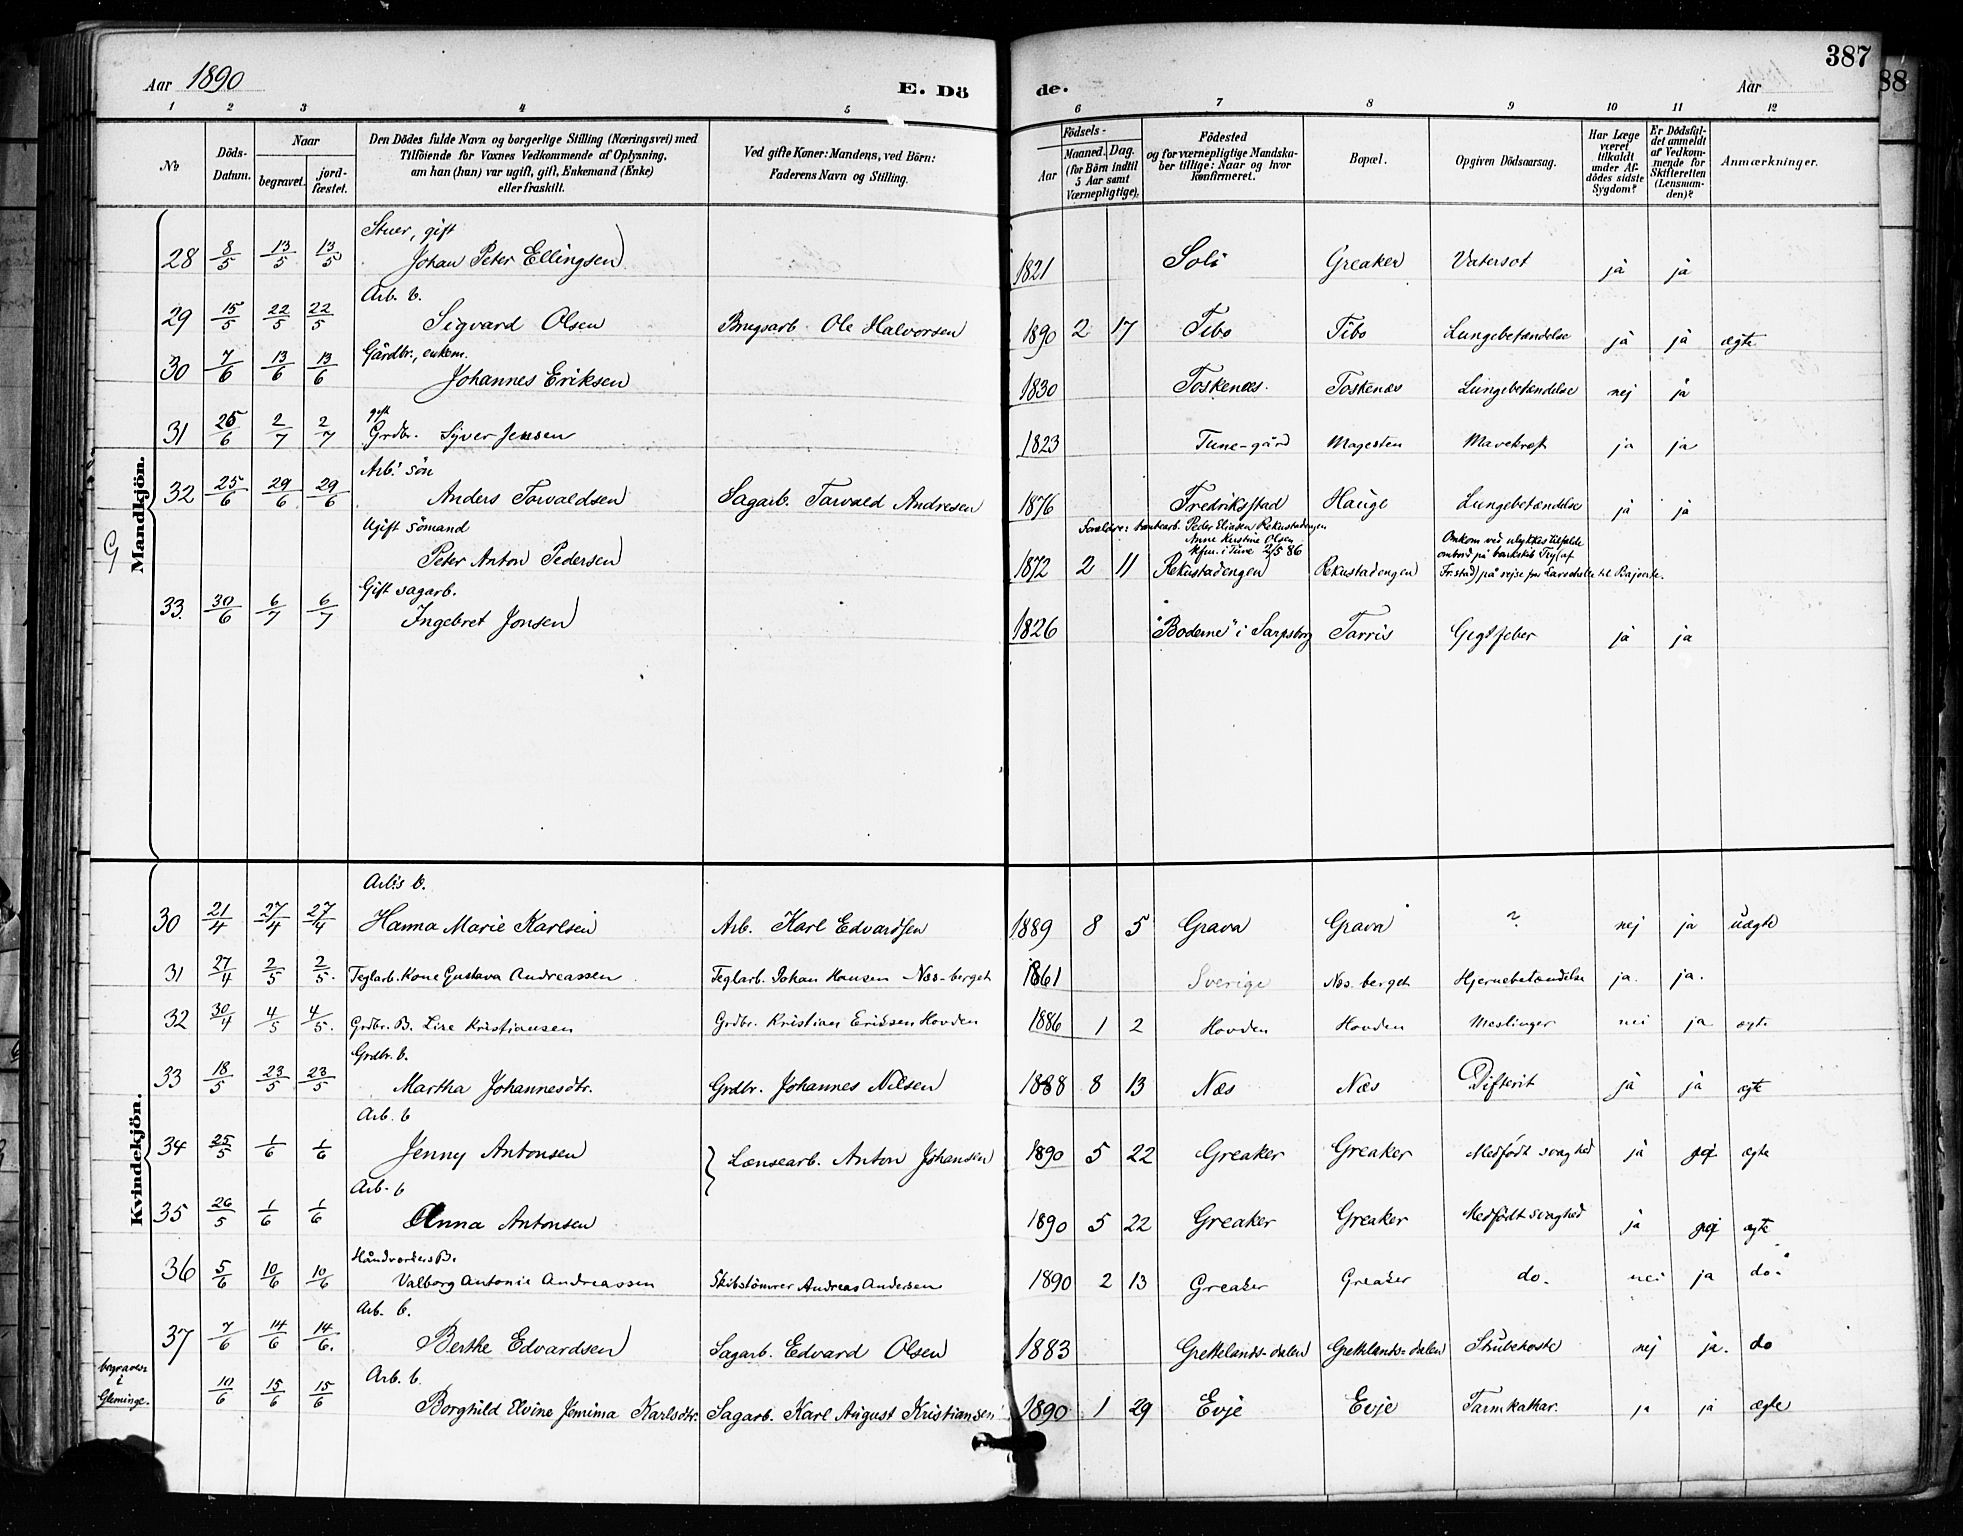 387
88
Aar 1890
E. Dö
de.
Aar
1 2 3 4 5 6 7 8 9 10 11 12
Nº
Döds-
Datum.
Naar
begravet.
jord-
fæstet.
Den Dödes fulde Navn og borgerlige Stilling (Næringsvei) med
Tilföiende for Voxnes Vedkommende af Oplysning,
om han (hun) var ugift, gift, Enkemand (Enke)
eller fraskilt.
Ved gifte Koner: Mandens, ved Börn:
Faderens Navn og Stilling.
Födsels-
Aar
Maaned. Dag.
(for Börn indtil
5 Aar samt
Værnepligtige).
Födested
og for værnepligtige Mandska-
ber tillige: Naar og hvor
konfirmeret.
Bopæl.
Opgiven Dödsaarsag.
Har Læge
været
tilkaldt
under Af-
dödes sidste
Sygdom?
Er Dödsfal-
det anmeldt
af Vedkom-
mende for
Skifteretten
(Lensman-
den)?
Anmærkninger.
Mandkjön.
Stuer, gift
28 8/5 13/5 13/5 Johan Peter Ellingsen 1821 Soli Greaker Vatersot ja ja
Arb. b.
29 15/5 22/5 22/5 Sigvard Olsen Brugsarb. Ole Halvorsen 1890 2 17 Tibo Tibo Lungebetændelse ja ja ægte
Gårdbr., enkem.
30 7/6 13/6 13/6 Johannes Eriksen 1830 Toskenæs. Toskenæs Lungebetændelse nej ja
gift
31 25/6 2/7 2/7 Grdbr. Syver Jensen 1823 Tune-gård Magesten Mavekræft ja ja
Arb.' sön
32 25/6 29/6 29/6 Anders Torvaldsen Sagarb. Torvald Andresen 1876 Fredrikstad Hauge Lungebetændelse ja ja
Ugift sömand
Forældre: tomtearb. Peder Eliasen Rekustadengen
Anne Kirstine Olsen
kfm. i Tune 2/5 86
Omkom ved ulykkestilfælde
ombord på barkskib Try (af
G Peter Anton Pedersen 1872 2 11 Rekustadengen Rekustadengen Fr.stad) på rejse fra
Gift sagarb.
33. 30/6 6/7 6/7 Ingebret Jonsen 1826 "Boderne" i Sarpsborg Torris Gigtfeber ja ja
Kvindekjön.
Arb.s b.
30 21/4 27/4 27/4 Hanna Marie Karlsen Arb. Karl Edvardsen 1889 8 5 Grava Grava ? nej ja uægte
31 27/4 2/5 2/5. Teglarb. Kone Gustava Andreassen Teglarb. Johan Hansen Næs-berget 1861 Sverige Næs. berget Hjernebetændelse ja. ja.
32 30/4 4/5 4/5. Grdbr. B. Lise Kristiansen Grdbr. Kristian Eriksen Hovden 1886 1 2 Hovden Hovden Meslinger nei ja ægte
Grdbr. b.
33 18/5 23/5 23/5 Martha Johannesdtr. Grdbr. Johannes Nilsen 1888 8 13 Næs Næs Difterit ja ja ægte
Arb. b
34 25/5 1/6 1/6 Jenny Antonsen } Lænsearb. Anton Johansen 1890 5 22 Greaker Greaker Medfödt svaghed ja ægte
Arb. b
35 26/5 1/6 1/6 Anna Antonsen 1890 5 22 Greaker Greaker Medfödt svaghed ja ægte
Håndverkers B.
36 5/6 10/6 10/6 Valborg Antonie Andreassen Skibstömrer Andreas Andersen 1890 2 13 Greaker Greaker do. nei ja do.
Arb. b.
37 7/6 14/6 14/6. Berthe Edvardsen Sagarb. Edvard Olsen 1883 Grettelands-dalen Grettelands-dalen Strubehoste nej ja. do
begraven
i
Glemminge.
Arb. b.
10/6 15/6 15/6 Borghild Elvine Jemima Karlsdtr. Sagarb. Karl August Kristiansen 1890 1 29 Evje Evje Tarmkatar. ja ja ægte